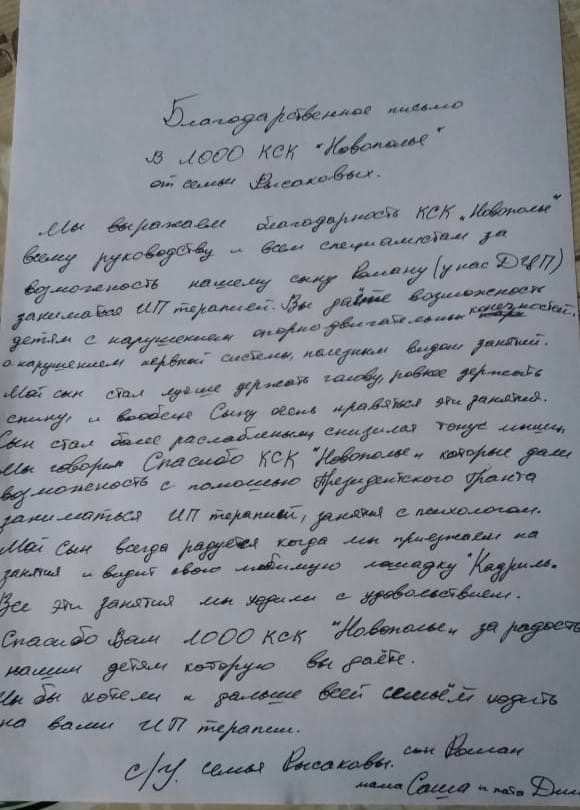 Благодарственное письмо
В ЛООО КСК "Новополье"
от семьи Рысаковых.
Мы выражаем благодарность КСК „Новополье"
всему руководству и всем специалистам за
возможность нашему сыну Роману (у нас ДЦП)
заниматься ИП терапией. Вы даёте возможность
детям с нарушением опорно двигательных конечностей,
с нарушением нервной системы, полезным видом занятий.
Мой сын стал лучше держать голову, ровнее держать
спину, и вообще Сыну очень нравяться эти занятия.
Сын стал более расслабленным, снизился тонус мышц,
Мы говорим Спасибо КСК "Новополье„ которые дали
возможность с помошью Президентского Гранта
заниматься ИП терапией, занятия с психологом.
Мой Сын всегда радуется когда мы приезжаем на
занятия и видит свою любимую лошадку "Кадриль„
Все эти занятия мы ходили с удовольствием.
Спасибо Вам ЛООО КСК "Новополье„ за радость
нашим детям которую вы даёте.
Мы бы хотели и дальше всей семьёй ходить
на вами ИП терапии.
с/у. семья Рысаковы. сын Роман
мама Саша и папа